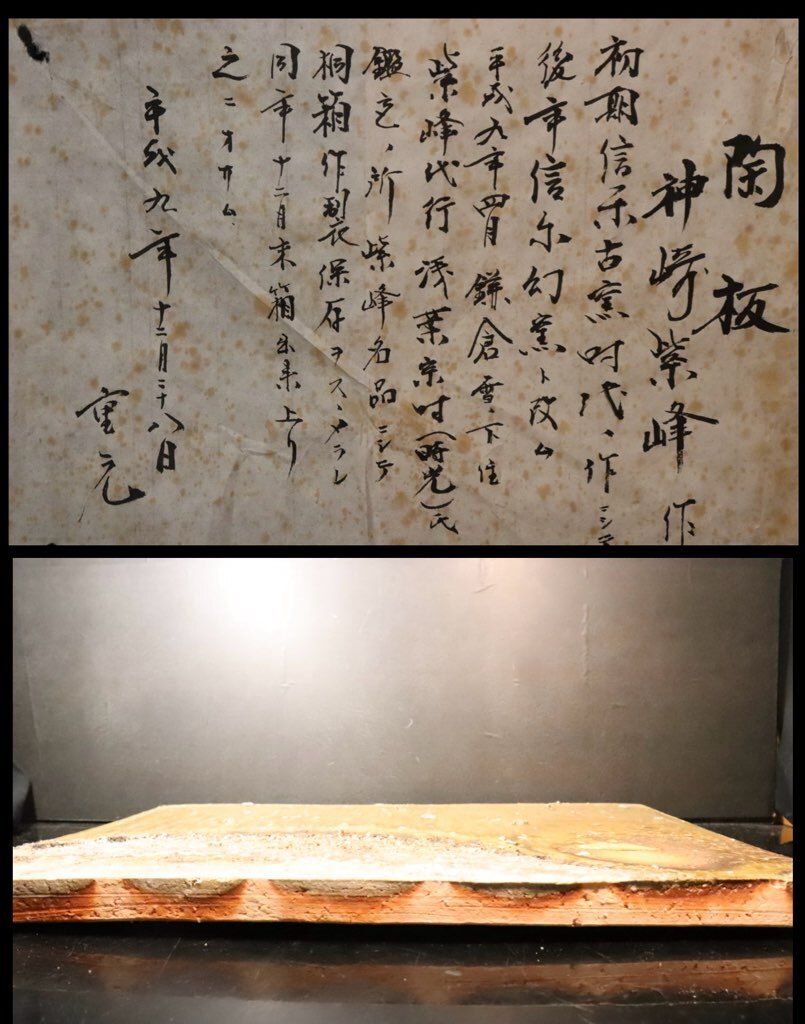 陶板
神崎紫峰 作
初期信楽古窯時代、作ニシテ
後年信尓幻窯ト改ム
平成九年四月 鎌倉雪ノ下住
紫峰代行 浅葉宗時(時光)氏
鑑定、所 紫峰名品ニシテ
桐箱作製保存ヲスヽメラレ
同年十二月末箱出来上リ
之ニオサム
平成九年十二月二十八日
重元